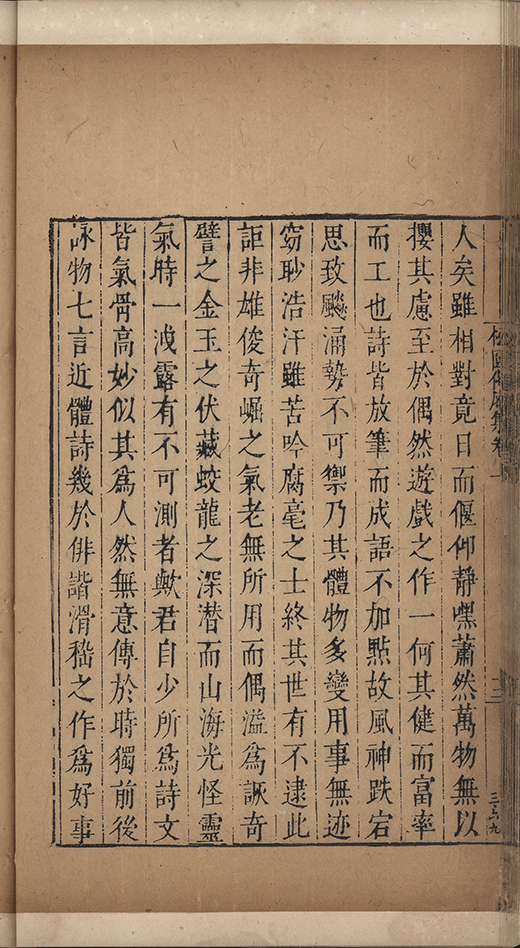 人矣雖相對竟日而偃仰靜嘿蕭然萬物無以
攖其慮至於偶然遊戲之作一何其健而富率
而工也詩皆放筆而成語不加點故風神跌宕
思致飈涌勢不可禦乃其體物多變用事無迹
窈眇浩汗雖苦吟腐毫之士終其世有不逮此
詎非雄俊奇崛之氣老無所用而偶溢為詼奇
譬之金玉之伏藏蛟龍之深潛而山海光怪靈
氣時一洩露有不可測者歟君自少所為詩文
皆氣骨高妙似其為人然無意傳於時獨前後
詠物七言近體詩幾於俳諧滑稽之作為好事
卷一
三六九